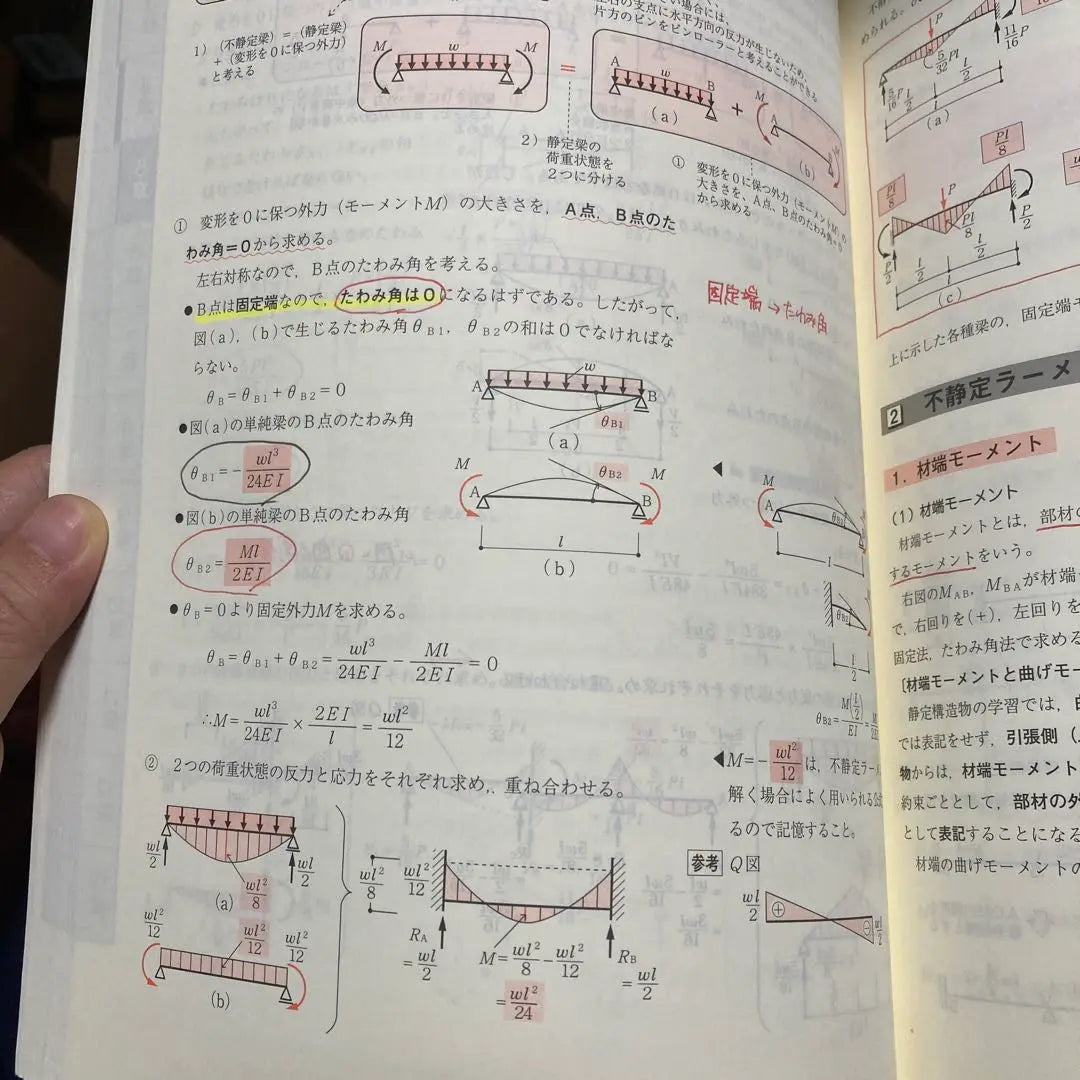 1) (不静定梁)=(静定梁)
+(変形を0に保つ外力)
と考える
M w M
=
A w B
(a)
+
M
A
(b)
左右の支点に水平方向の反力が生じないため、
片方のピンをピンローラーと考えることができる
2) 静定梁の
荷重状態を
2つに分ける
① 変形を0に保つ外力(モーメントM)の
大きさを、A点、B点のたわみ角=0
から求める
① 変形を0に保つ外力(モーメントM)の大きさを、A点、B点のた
わみ角=0から求める。
左右対称なので、B点のたわみ角を考える。
●B点は固定端なので、たわみ角は0になるはずである。したがって、
図(a)、(b)で生じるたわみ角θB1、θB2の和は0でなければな
らない。
θB=θB1+θB2=0
固定端→たわみ角
●図(a)の単純梁のB点のたわみ角
θB1=-wl³/24EI
w
A B
θB1
(a)
●図(b)の単純梁のB点のたわみ角
θB2=Ml/2EI
M θB2 M
A B
l
(b)
◀
M
A
θB2
l
θB2
l/2
●θB=0より固定外力Mを求める。
θB=θB1+θB2=wl³/24EI-Ml/2EI=0
∴M=wl³/24EI×2EI/l=wl²/12
◀M=-wl²/12は、不静定ラー
解く場合によく用いられる公
るので記憶すること。
② 2つの荷重状態の反力と応力をそれぞれ求め、重ね合わせる。
wl/2 wl/2
wl²/8
(a)
wl²/12 wl²/12 wl²/12
(b)
wl²/8 wl²/12
RA=wl/2
M=wl²/8-wl²/12
=wl²/24
RB=wl/2
参考 Q図
wl/2 ⊕ ⊖ wl/2
P
5/32Pl
5/16P
11/16P
l/2 l/2
l
(a)
Pl/8
Pl/8
P
Pl/8
P/2 P/2
l/2 l/2
l
(c)
上に示した各種梁の、固定端モ
2 不静定ラーメ
1. 材端モーメント
(1) 材端モーメント
材端モーメントとは、部材の
するモーメントをいう。
右図のMAB、MBAが材端
で、右回りを(+)、左回りを
固定法、たわみ角法で求める
[材端モーメントと曲げモー
静定構造物の学習では、
では表記をせず、引張側(
物からは、材端モーメント
約束ごととして、部材の外
として表記することになる
材端の曲げモーメントの